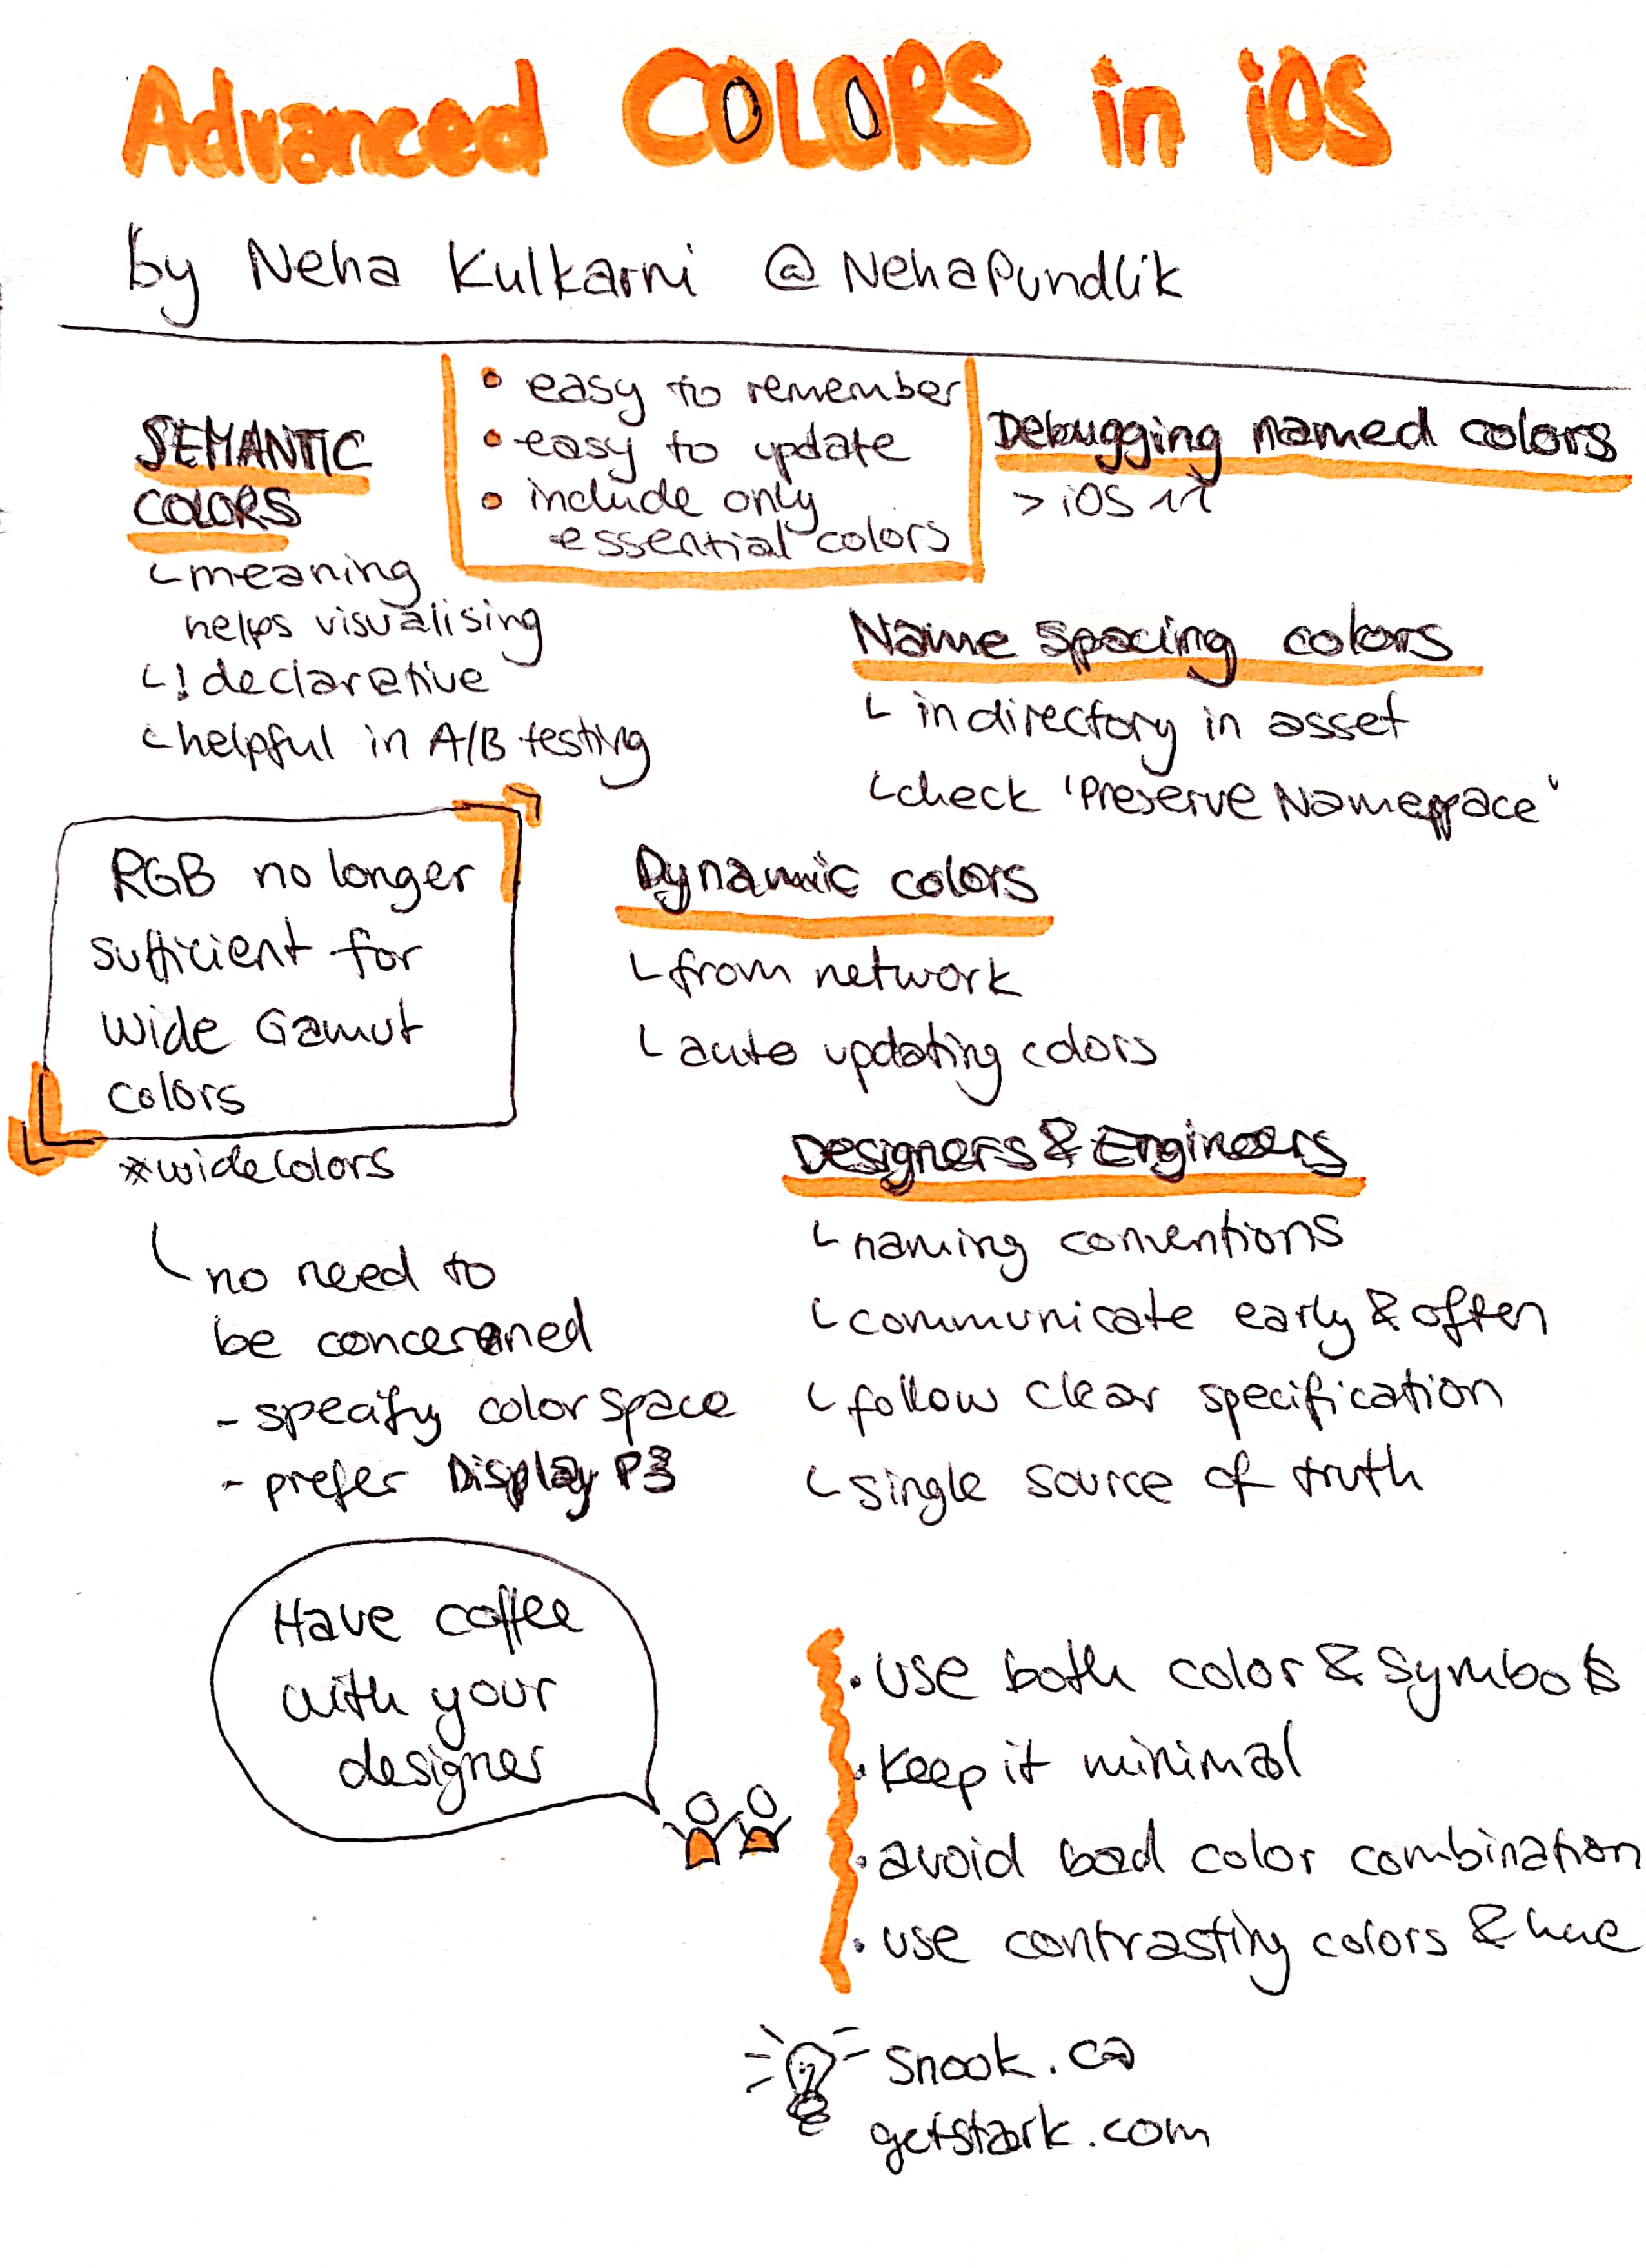 Advanced COLORS in iOS
by Neha Kulkarni @NehaPundlik
SEMANTIC
COLORS
meaning
helps visualising
! declarative
helpful in A/B testing
• easy to remember
• easy to update
• include only
essential colors
Debugging named colors
> iOS 11
Name spacing colors
in directory in asset
check 'Preserve Namespace'
RGB no longer
sufficient for
Wide Gamut
colors
*wideColors
no need to
be concerened
- specify color space
- prefer Display P3
Dynamic colors
from network
auto updating colors
Designers & Engineers
naming conventions
communicate early & often
follow clear specification
single source of truth
Have coffee
with your
designer
• use both color & symbols
• keep it minimal
• avoid bad color combination
• use contrasting colors & hue
Snook.ca
getstark.com